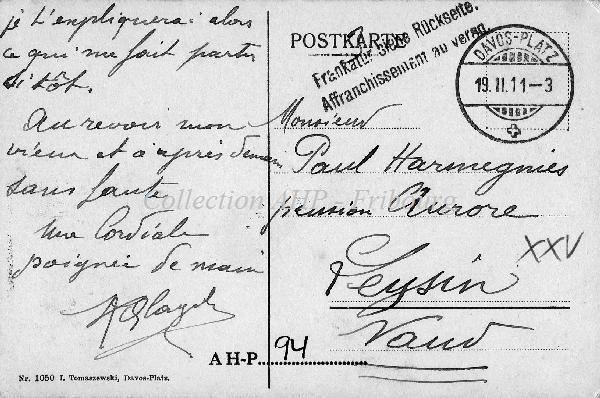 je t'expliquerai alors
ce qui me fait partir
si tôt.
Au revoir mon
vieux et à après demain
sans faute
Une Cordiale
poignée de main
POSTKARTE
Frankatur siehe Rückseite.
Affranchissement au verso.
DAVOS-PLATZ
19.II.11-3
Monsieur
Paul Harmegnies
pension Aurore
Leysin
Vaud
XXV
Collection AHP - Fribourg
AH-P 94
Nr. 1050 I. Tomaszewski, Davos-Platz.